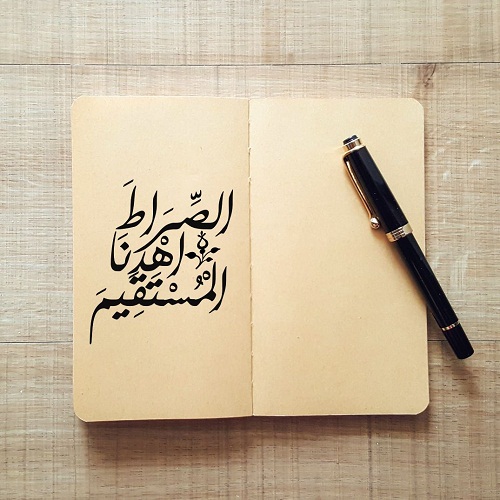 الصِّرَاطَ
اهْدِنَا
الْمُسْتَقِيمَ